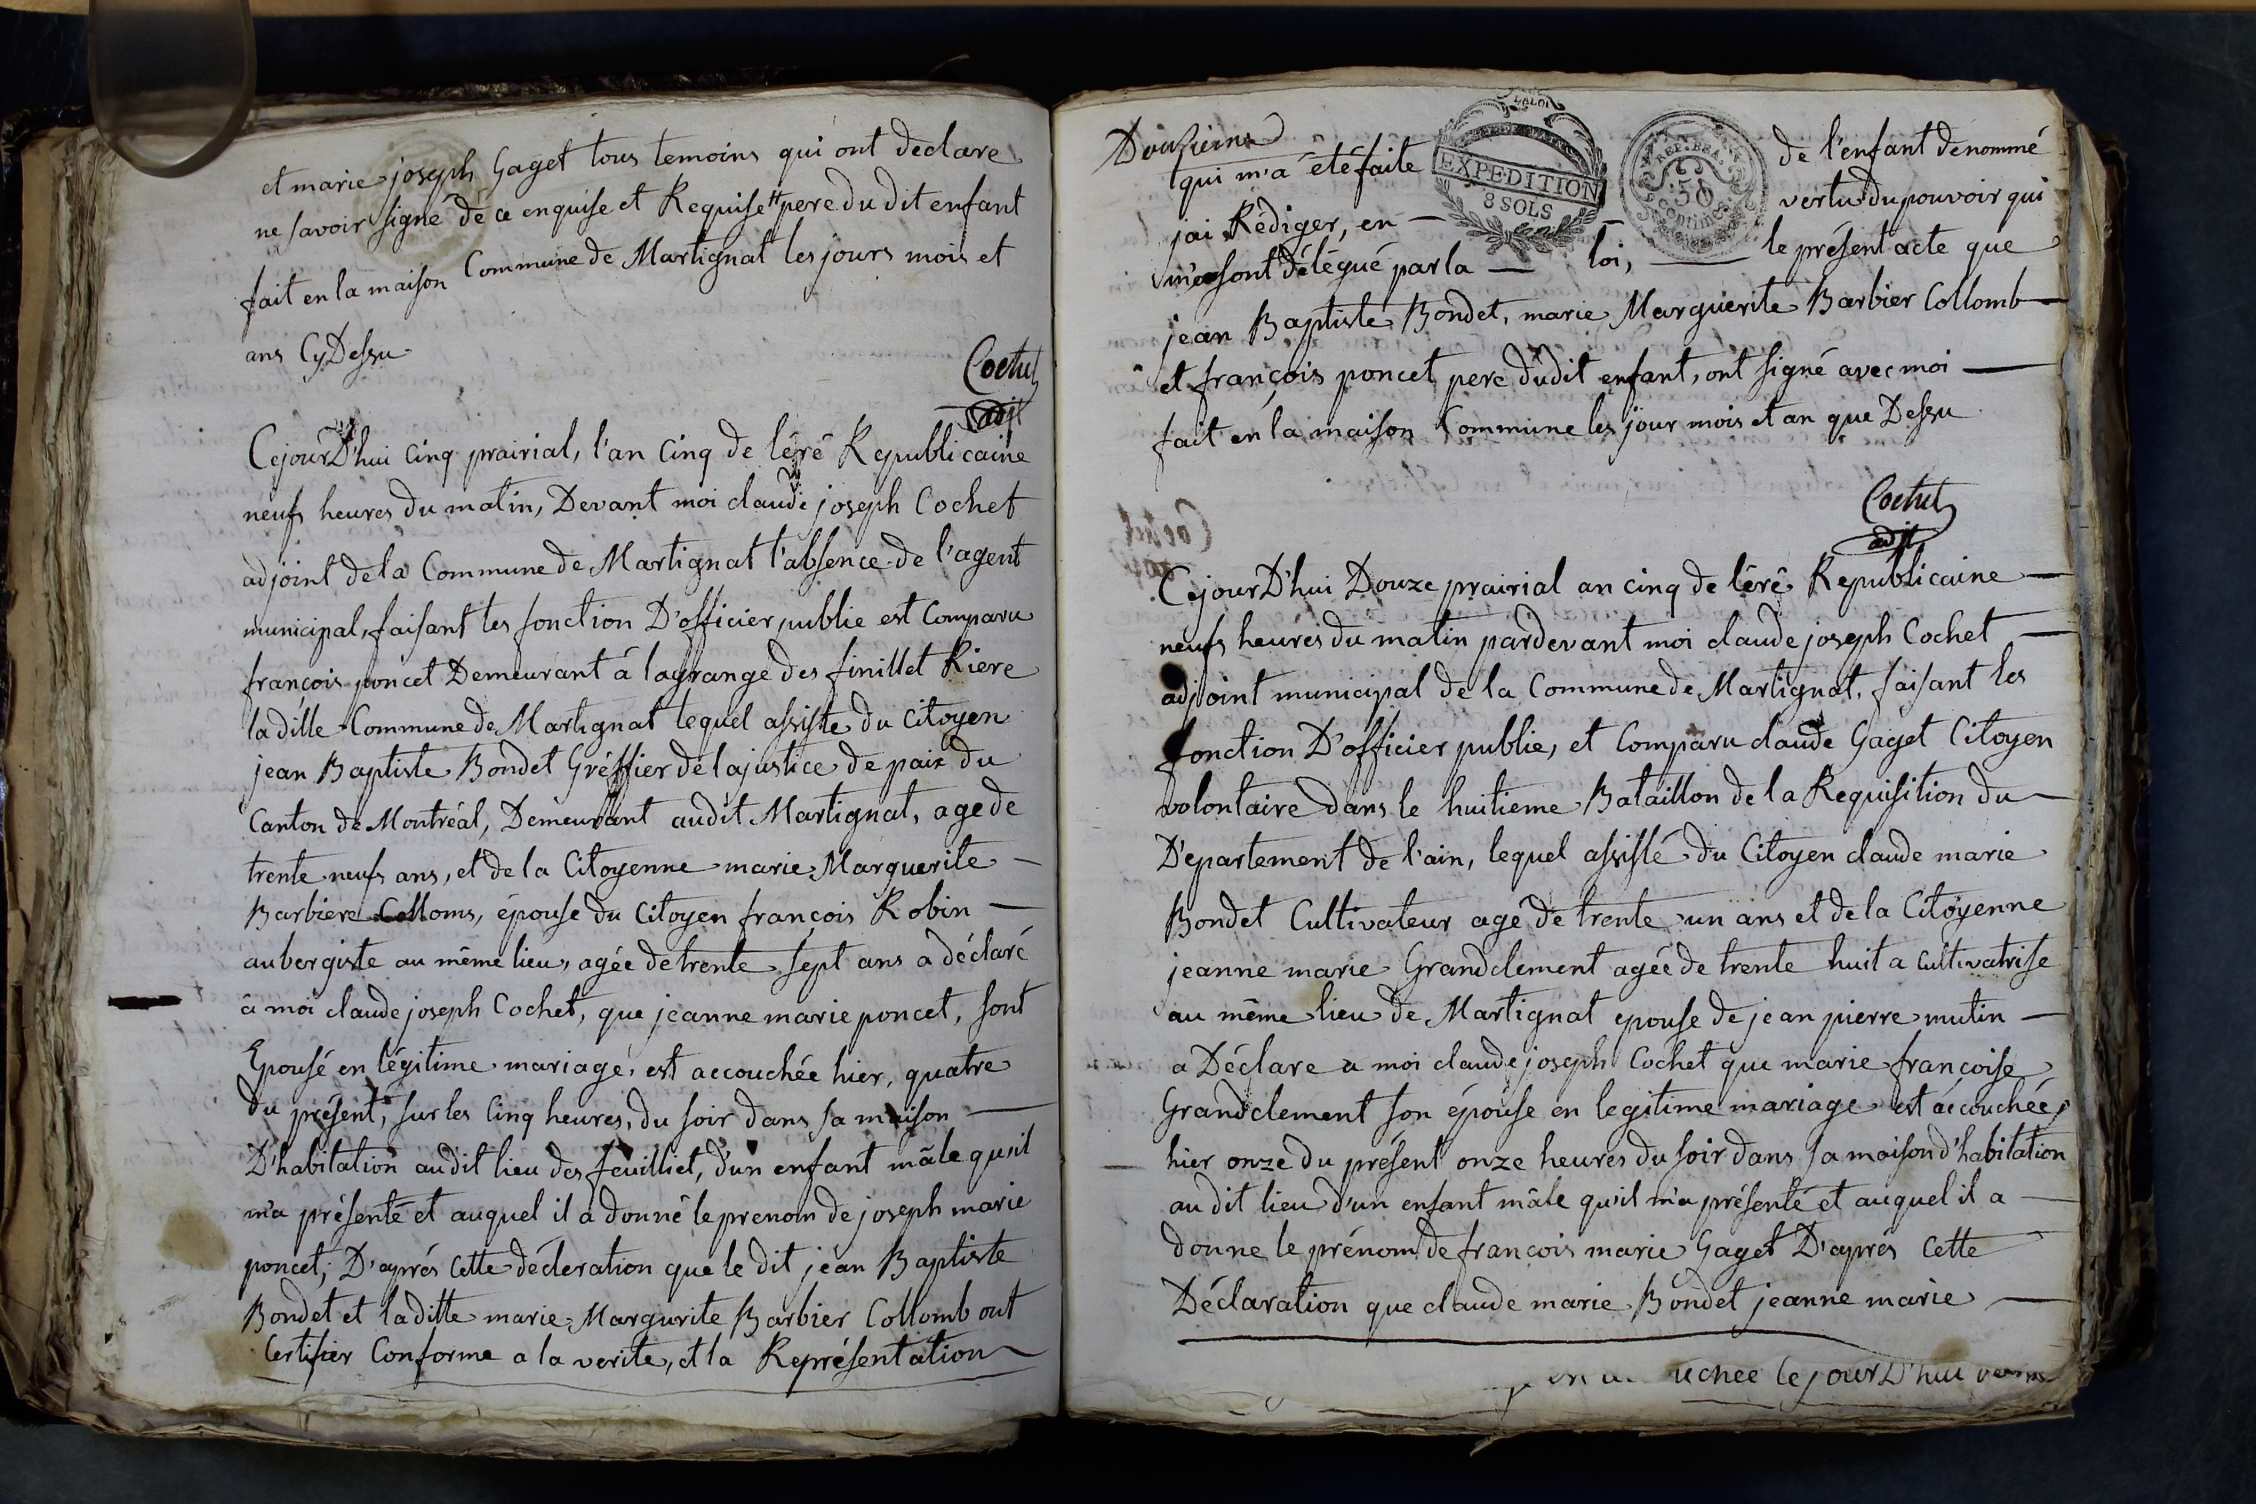 et marie joseph Gaget tous temoins qui ont declare
ne savoir signé de ce enquise et Requise tt pere du dit enfant
fait en la maison Commune de Martignat les jours mois et
ans Cy Dessu
Cochet
adjt
Cejour D'hui Cinq prairial, l'an Cinq de lêrê Republicaine
neufs heures du matin, Devant moi claude joseph Cochet
adjoint de la Commune de Martignat l'absence de l'agent
municipal, faisant les fonction D'officier publie est Comparu
françois poncet Demeurant á lagrange des finillet Riere
la ditte Commune de Martignat lequel assiste du Citoyen
jean Baptiste Bondet Gréffier de lajustice de paix du
Canton de Montréal, Demeurant audit Martignat, age de
trente neufs ans, et de la Citoyenne marie Marguerite
Barbiere Colloms, épouse du Citoyen françois Robin
aubergiste au même lieu, agée de trente sept ans a déclaré
á moi claude joseph Cochet, que jeanne marie poncet, sont
Epousé en légitime mariage, est accouchée hier, quatre
du présent, sur les Cinq heures, du soir dans sa maison
D'habitation audit lieu des feuilliet, d'un enfant mâle qu'il
m'a présenté et auquel il a donné le prenom de joseph marie
poncet; D'aprés Cette décleration que le dit jean Baptiste
Bondet et laditte marie Margurite Barbier Collomb ont
Certifier Conforme a la verite, et la Représentation
Douzieme
qui m'a été faite de l'enfant dénommé
LA LOI
EXPEDITION
8 SOLS
REP. FRA.
50
centimes
jai Rédiger, en vertu du pouvoir qui
m'a sont délégué par la loi, le présent acte que
jean Baptiste Bondet, marie Marguerite Barbier Collomb
et françois poncet pere dudit enfant, ont signé avec moi
fait en la maison Commune les jour mois et an que Dessu
Cochet
adjt
Cejour D'hui Douze prairial an cinq de lêrê Republicaine
neufs heures du matin pardevant moi claude joseph Cochet
adjoint municipal de la Commune de Martignat, faisant les
fonction D'officier publie, et Comparu claude Gaget Citoyen
volontaire dans le huitieme Bataillon de la Requisition du
Département de l'ain, lequel assisté du Citoyen claude marie
Bondet Cultivateur agé de trente un ans et de la Citoyenne
jeanne marie Grandclement agée de trente huit a Cultivatrise
au même lieu de Martignat epouse de jean pierre mutin
a Déclare a moi claude joseph Cochet que marie françoise
Grandclement son épouse en legitime mariage est accouchée,
hier onze du présent onze heures du soir dans sa maison d'habitation
au dit lieu d'un enfant mâle qu'il m'a présenté et auquel il a
donne le prénom de francois marie Gaget D'aprés Cette
Déclaration que claude marie Bondet jeanne marie
uchée Cejour D'hui